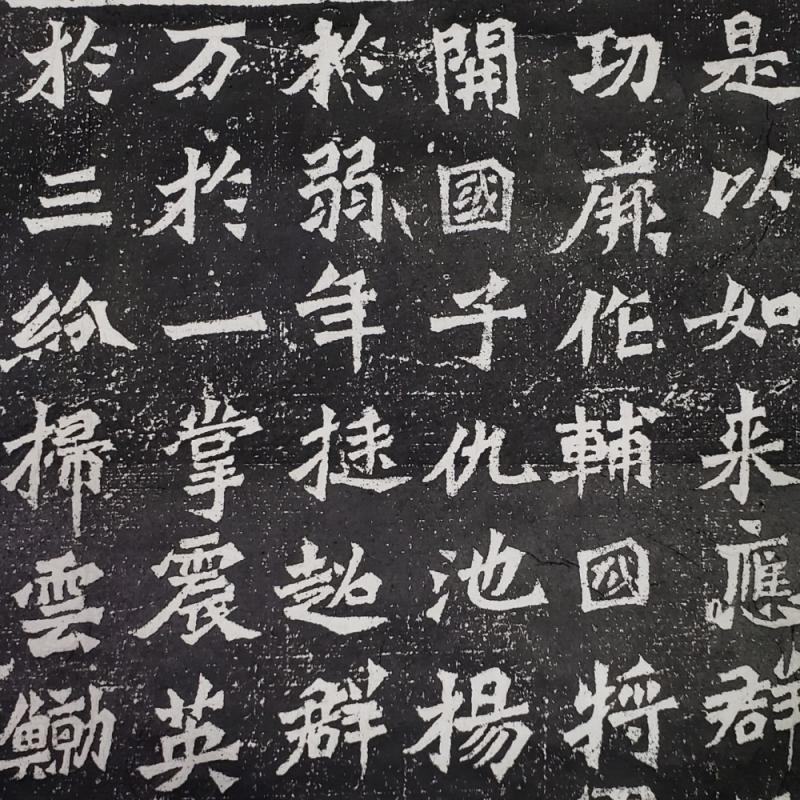 是以如来應群
功厥作輔國将
開國子仇池楊
於弱年挺超群
万於一掌震英
於三紛掃雲鯨